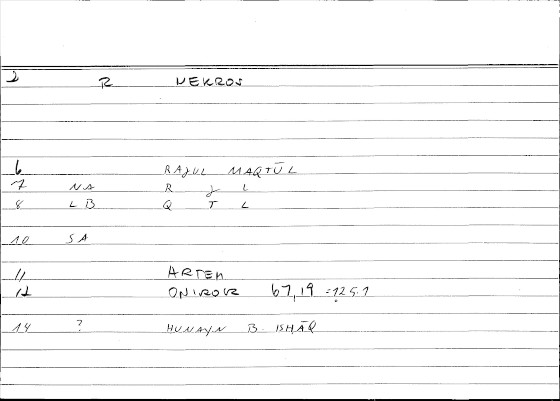 2 R NEKROS
6 RAJUL MAQTŪL
7 NA R J L
8 LB Q T L
10 SA
11 ARTEM
12 ONIROKR 67,19 =125.1
14 ? HUNAYN B. ISHĀQ